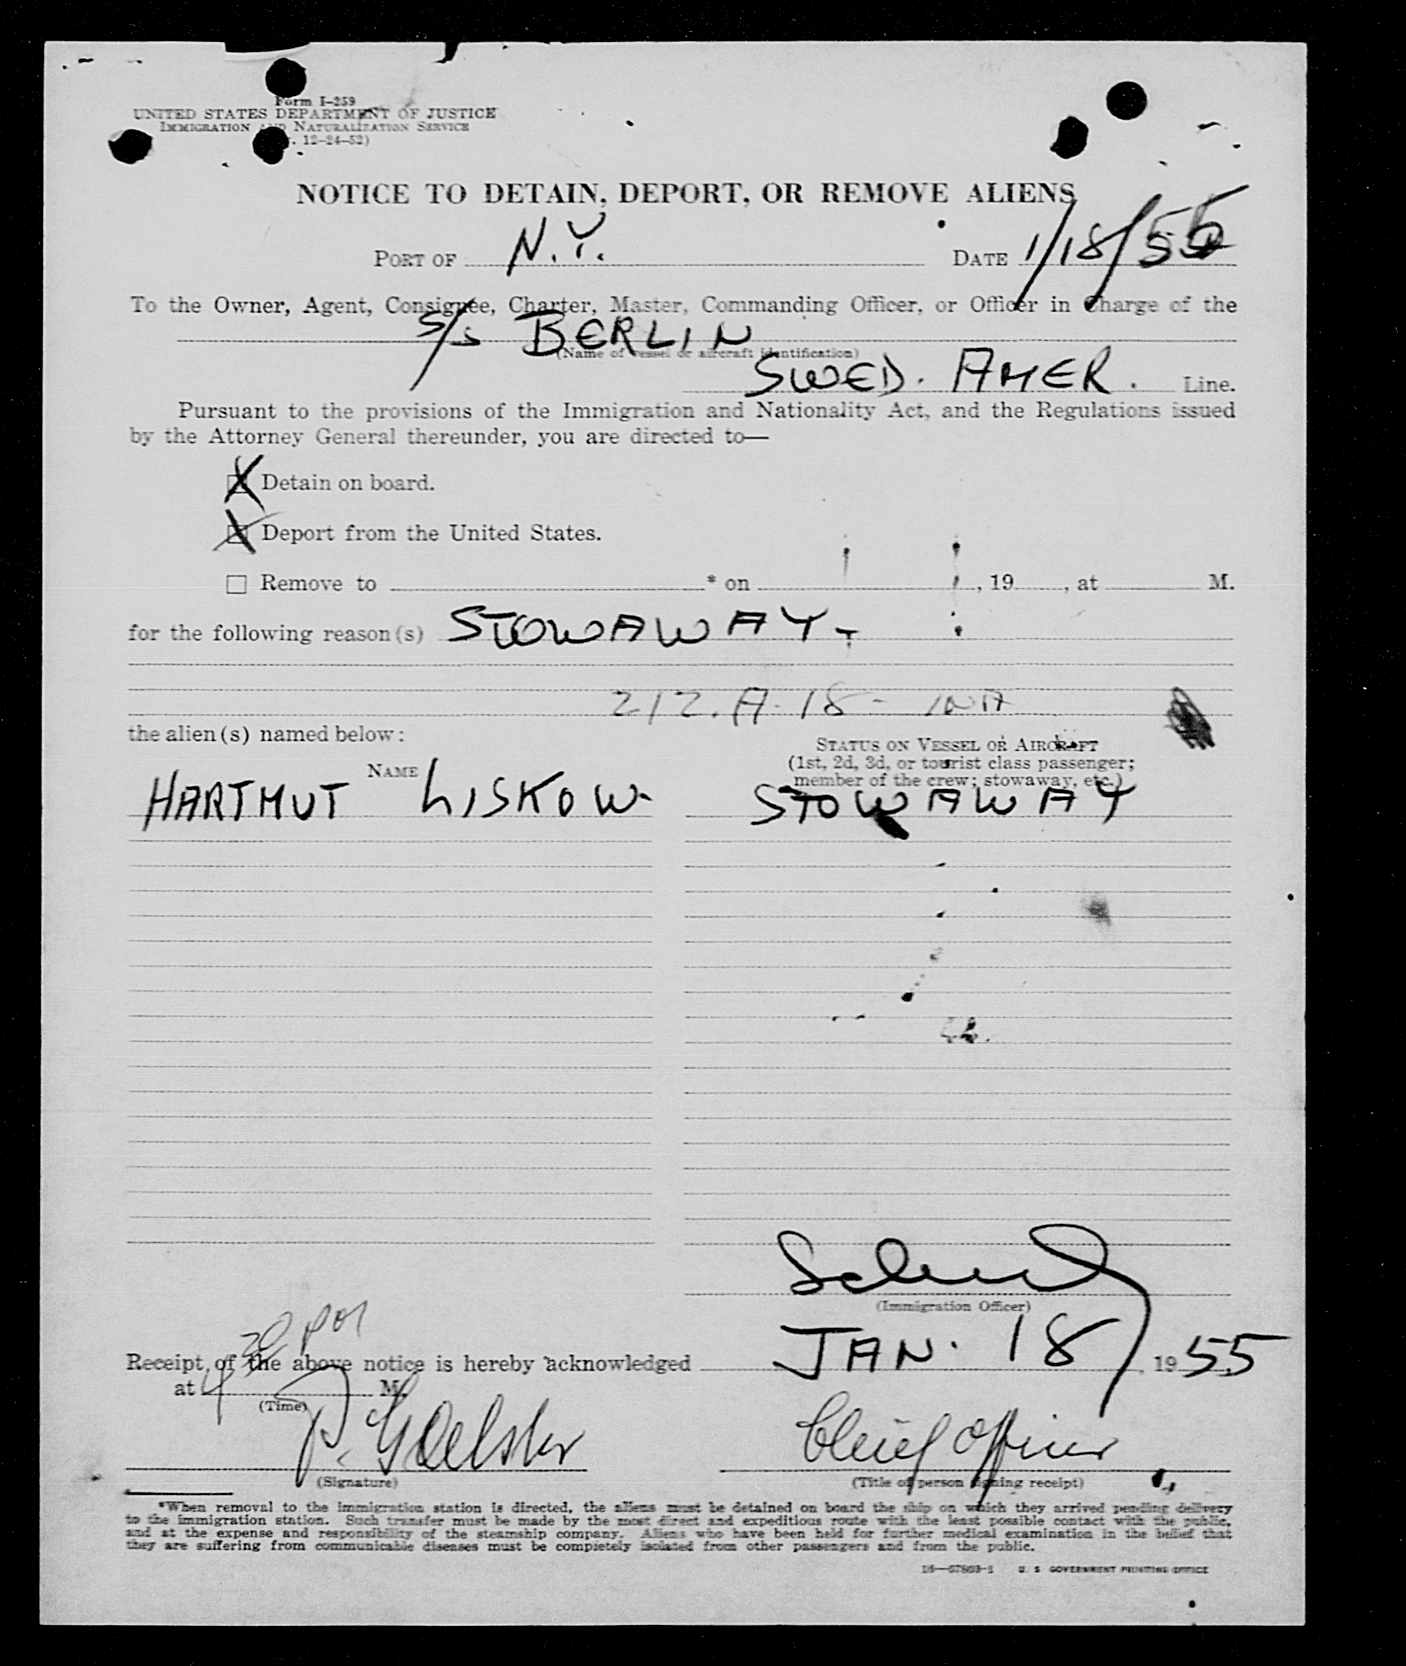 Form I-259
UNITED STATES DEPARTMENT OF JUSTICE
IMMIGRATION AND NATURALIZATION SERVICE
12-24-52)
NOTICE TO DETAIN, DEPORT, OR REMOVE ALIENS
PORT OF N.Y. DATE 1/18/55
To the Owner, Agent, Consignee, Charter, Master, Commanding Officer, or Officer in Charge of the
S/S BERLIN
(Name of vessel or aircraft identification)
SWED. AMER. Line.
Pursuant to the provisions of the Immigration and Nationality Act, and the Regulations issued
by the Attorney General thereunder, you are directed to—
X Detain on board.
X Deport from the United States.
☐ Remove to * on , 19 , at M.
for the following reason(s) STOWAWAY.
212.A.18- INA
the alien(s) named below:
STATUS ON VESSEL OR AIRCRAFT
(1st, 2d, 3d, or tourist class passenger;
member of the crew; stowaway, etc.)
NAME
HARTMUT LISKOW- STOWAWAY
(Immigration Officer)
Receipt of the above notice is hereby acknowledged JAN. 18 1955
at 4 30 M.
(Time)
Chief Officer
(Signature) (Title of person signing receipt)
*When removal to the immigration station is directed, the aliens must be detained on board the ship on which they arrived pending delivery
to the immigration station. Such transfer must be made by the most direct and expeditious route with the least possible contact with the public,
and at the expense and responsibility of the steamship company. Aliens who have been held for further medical examination in the belief that
they are suffering from communicable diseases must be completely isolated from other passengers and from the public.
U. S. GOVERNMENT PRINTING OFFICE